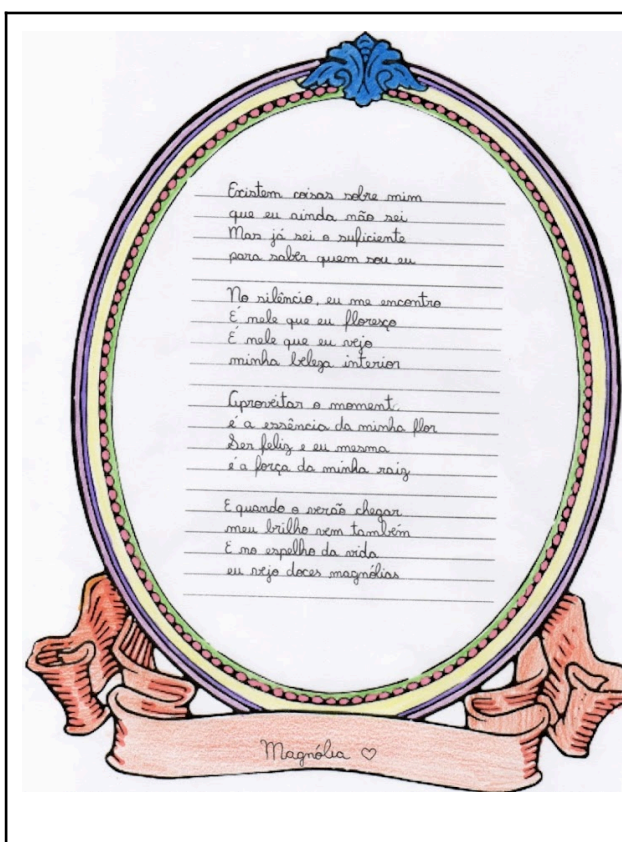 Existem coisas sobre mim
que eu ainda não sei
Mas já sei o suficiente
para saber quem sou eu
No silêncio, eu me encontro
É nele que eu floresço
É nele que eu vejo
minha beleza interior
Aproveitar o moment.
é a essência da minha flor
Ser feliz e eu mesma
é a força da minha raiz
E quando o verão chegar
meu brilho vem também
E no espelho da vida
eu vejo doces magnólias
Magnólia ♡